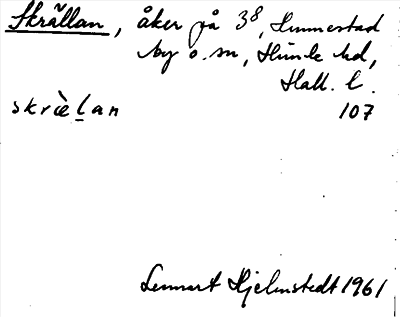 Skrällan, åker på 3⁸, Hunnestad
by o. sn, Himle hd,
Hall. l.
skrὲḻan 107
Lennart Hjelmstedt 1961